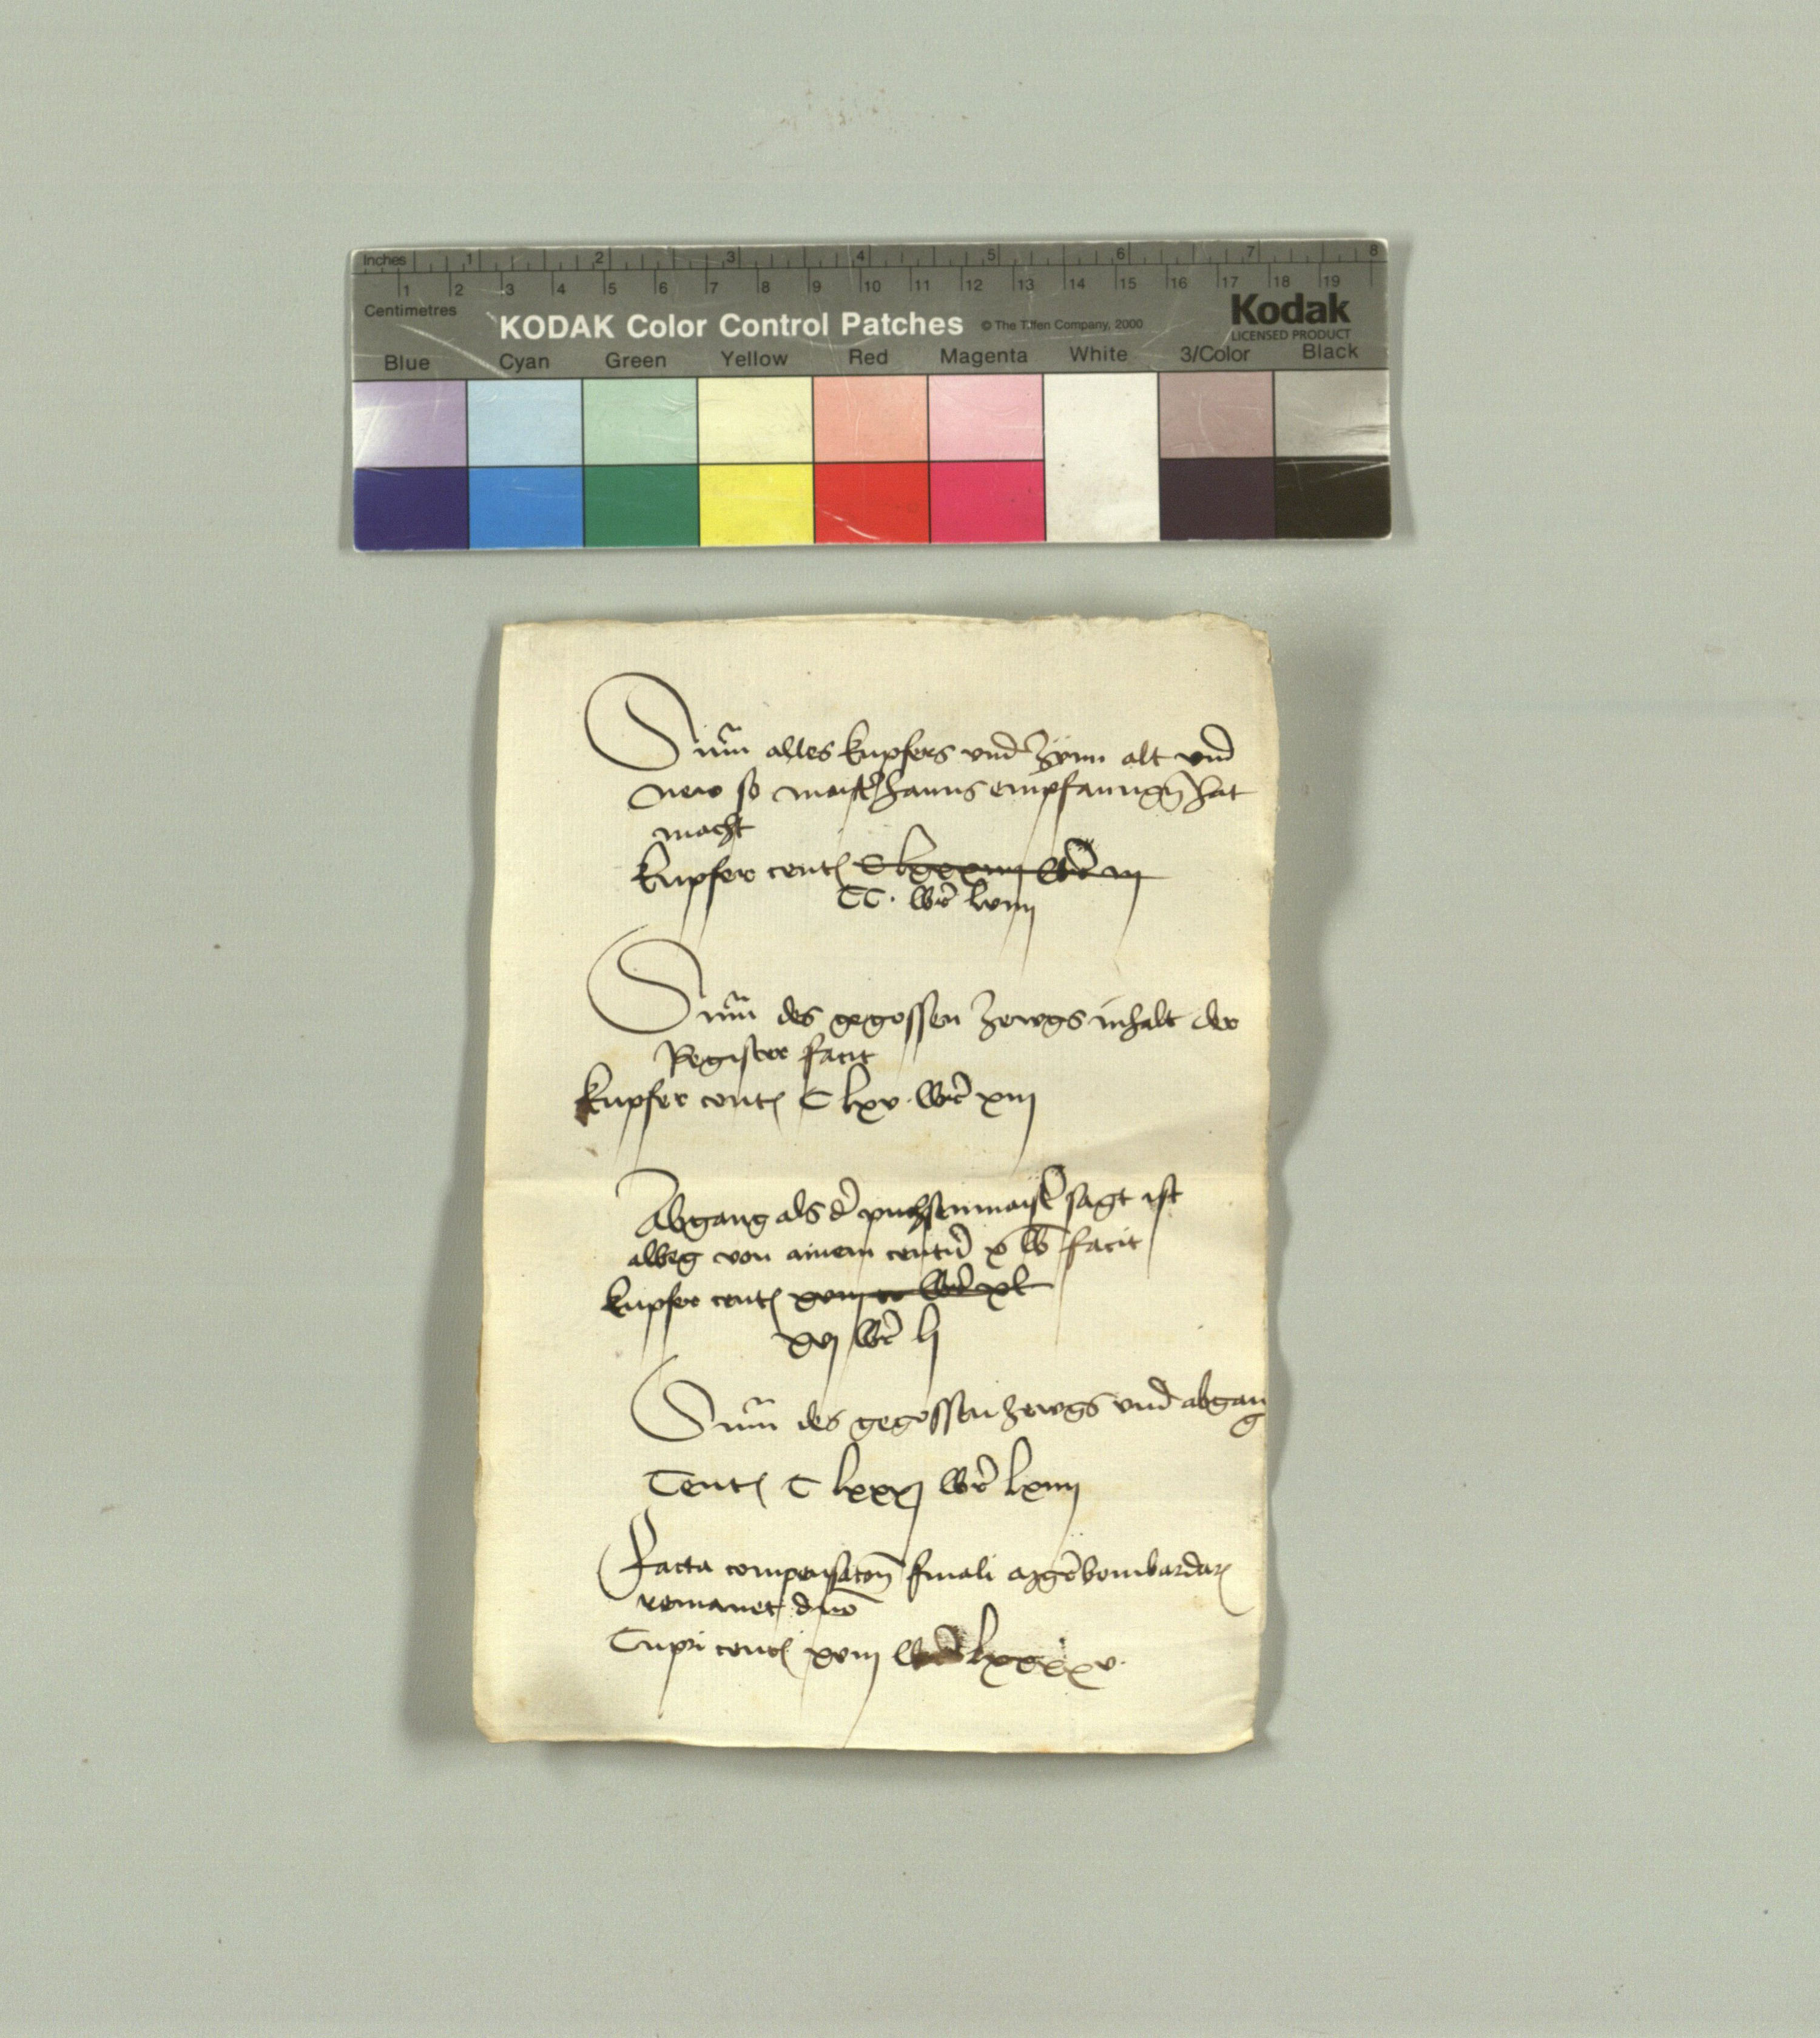 Inches 1 2 3 4 5 6 7 8
1 2 3 4 5 6 7 8 9 10 11 12 13 14 15 16 17 18 19
Centimetres
KODAK Color Control Patches © The Tiffen Company, 2000 Kodak
LICENSED PRODUCT
Blue Cyan Green Yellow Red Magenta White 3/Color Black
Sum̅ alles kupfers vnd Zÿnn alt vnd
new so maist hanns empfanngn̅ hat
macht
kupfer cent C lxxxiiij
CC. lviiij
Sum̅ des gegossen Zewgs inhalt der
Register facit
kupfer cent C lxv. xiij
Abgang als d puchsenmaist sagt ist
alweg von ainem centn̅ x facit
kupfer cent xviij xl
xvj lj
Sum̅ des gegossen Zewgs vnd abgan
g
Cent C lxxxj lxiiij
Facta compensaton̅ finali bombardar
remanet
Cupri cent xviij lxxxxv.